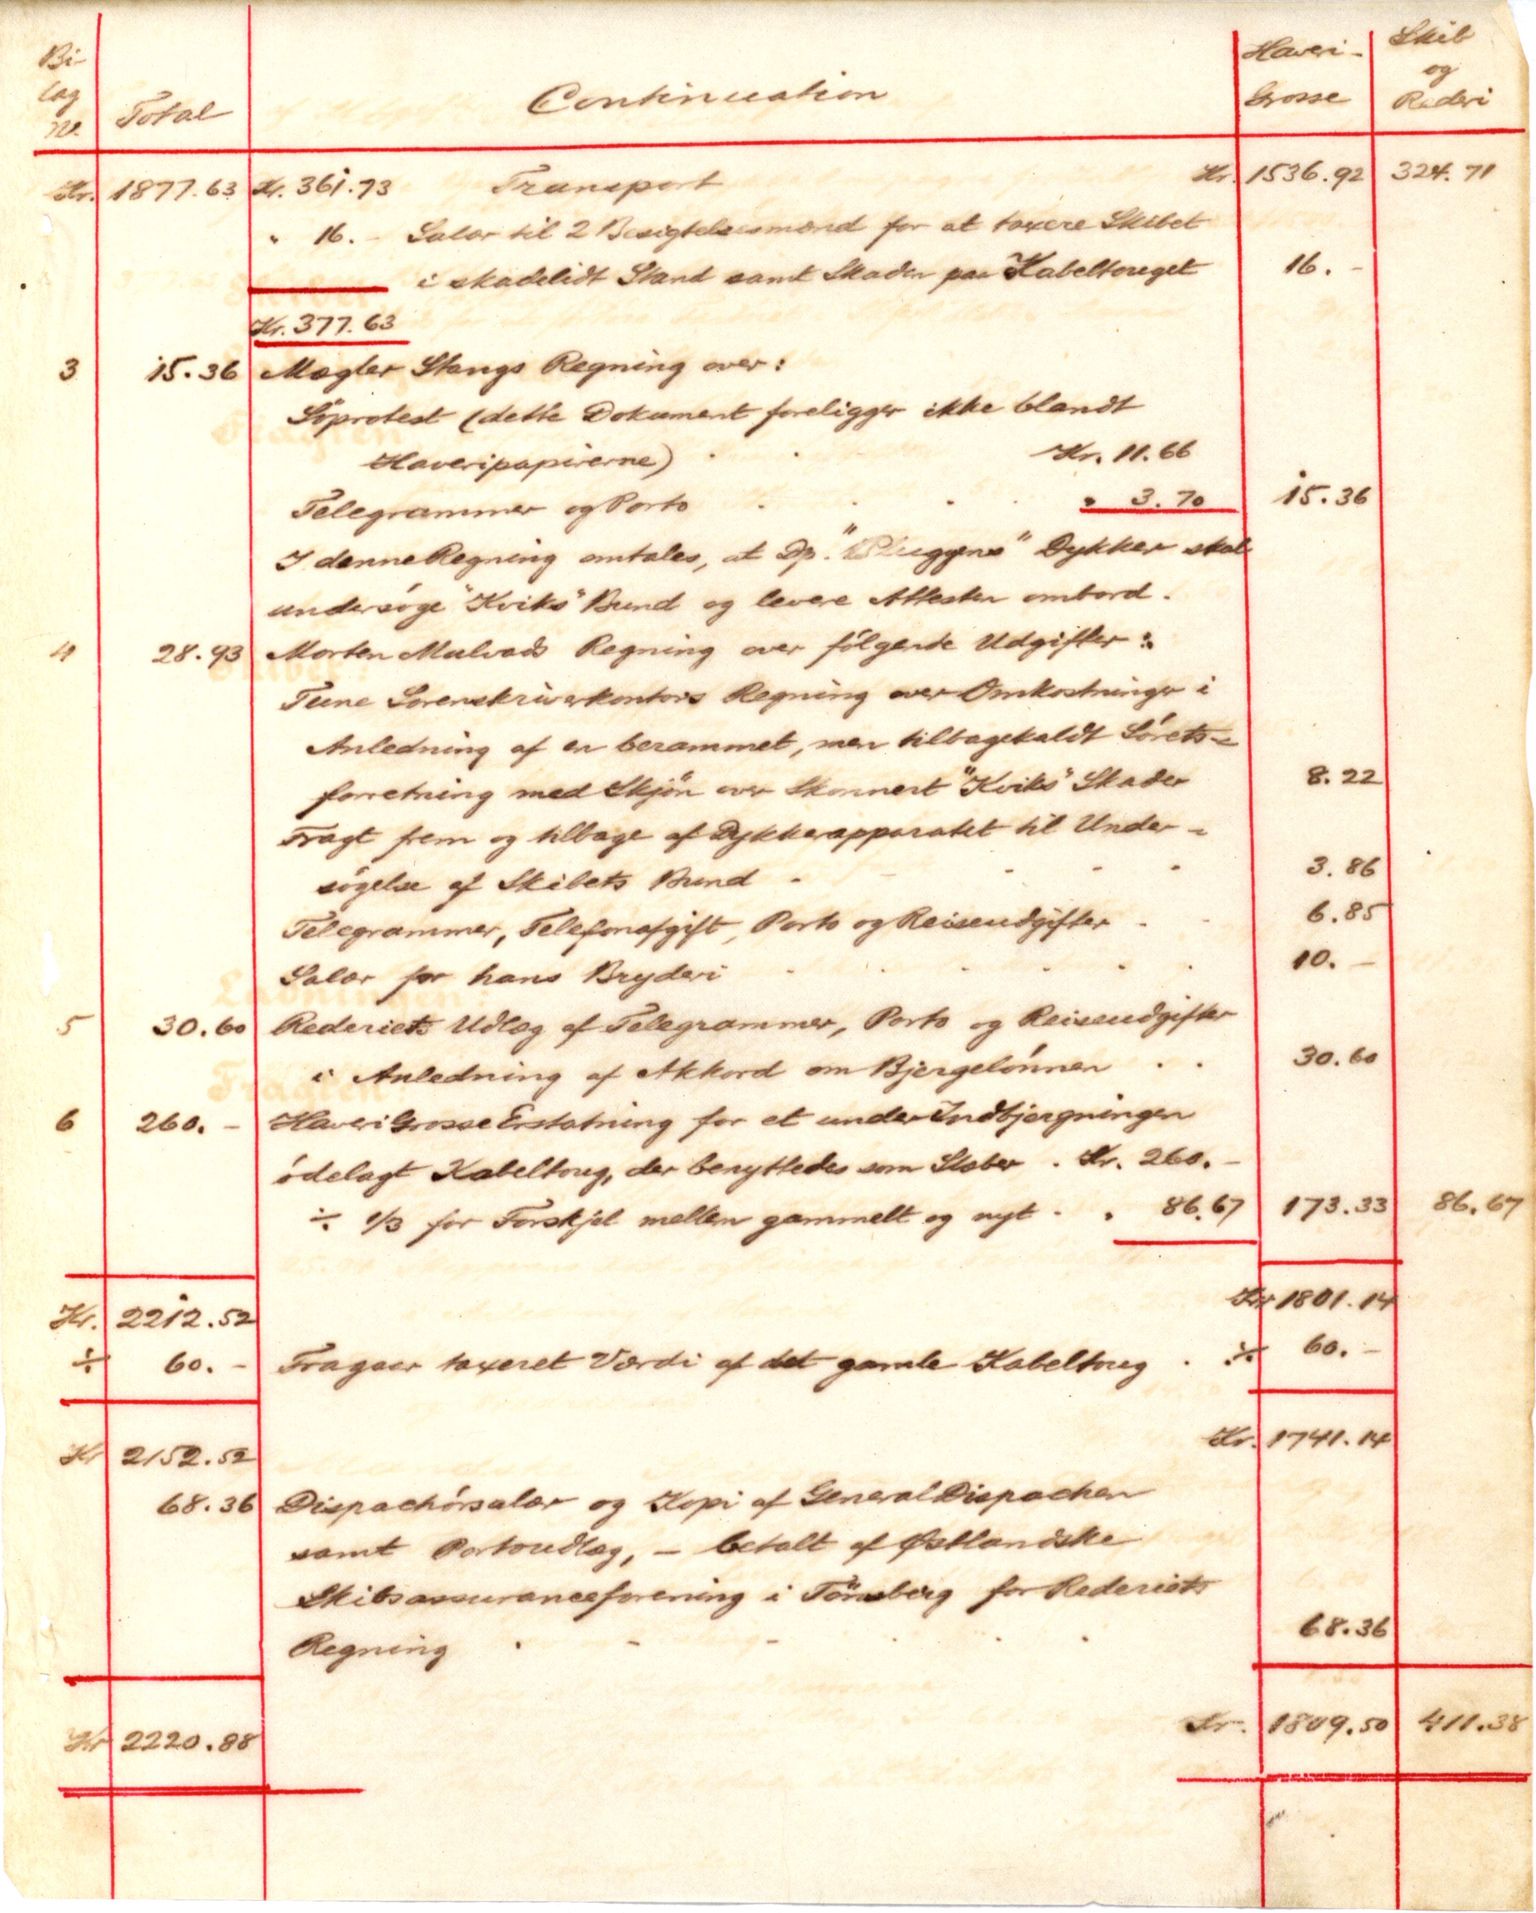 Bi-
lag
No.
Total
Continuation
Haveri-
Grosse
Skib
og
Rederi
Kr. 1877.63 Kr. 361.73 Transport Kr. 1536.92 324.71
" 16.- Salær til 2 Besigtelsesmænd for at taxere Skibet
i skadelidt Stand samt Skaden paa Kabeltouget 16.-
Kr. 377.63
3 15.36 Mægler Stangs Regning over:
Söprotest (dette Dokument foreligger ikke blandt
Haveripapirerne) Kr. 11.66
Telegrammer og Porto " 3.70 15.36
I denne Regning omtales, at Dp. "Pluggens" Dykker skal
undersöge "Kviks" Bund og levere Attesten ombord.
4 28.93 Morten Mulvads Regning over fölgende Udgifter:
Tune Sorenskriverkontors Regning over Omkostninger i
Anledning af en berammet, men tilbagekaldt Sörets-
forretning med Skjön over Skonnert "Kviks" Skader 8.22
Fragt frem og tilbage af Dykkerapparatet til Under-
sögelse af Skibets Bund 3.86
Telegrammer, Telefonafgift, Porto og Reiseudgifter 6.85
Salær for hans Bryderi 10.-
5 30.60 Rederiets Udlæg af Telegrammer, Porto og Reiseudgifter
i Anledning af Akkord om Bjergelönnen 30.60
6 260.- Haveri Grosse Erstatning for et under Indbjergningen
ödelagt Kabeltoug, der benyttedes som Slæber . Kr. 260.-
÷ 1/3 for Forskjel mellem gammelt og nyt . " 86.67 173.33 86.67
Kr. 2212.52 Kr 1801.14
÷ 60.- Fragaar taxeret Værdi af det gamle Kabeltoug . ÷ 60.-
Kr 2152.52 Kr. 1741.14
68.36 Dispachörsalær og Kopi af General Dispachen
samt Portoudlæg, - betalt af Østlandske
Skibsassuranceforening i Tönsberg for Rederiets
Regning 68.36
Kr 2220.88 Kr. 1809.50 411.38